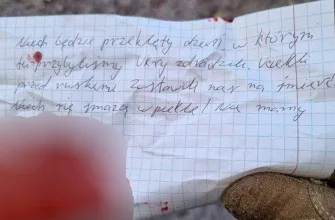 Niech będzie przeklęty dzień, w którym
tu przybyliśmy. Ukry zdradzili, uciekli
przed ruskimi zostawili nas na śmierć
niech się smażą w piekle! Nie mamy